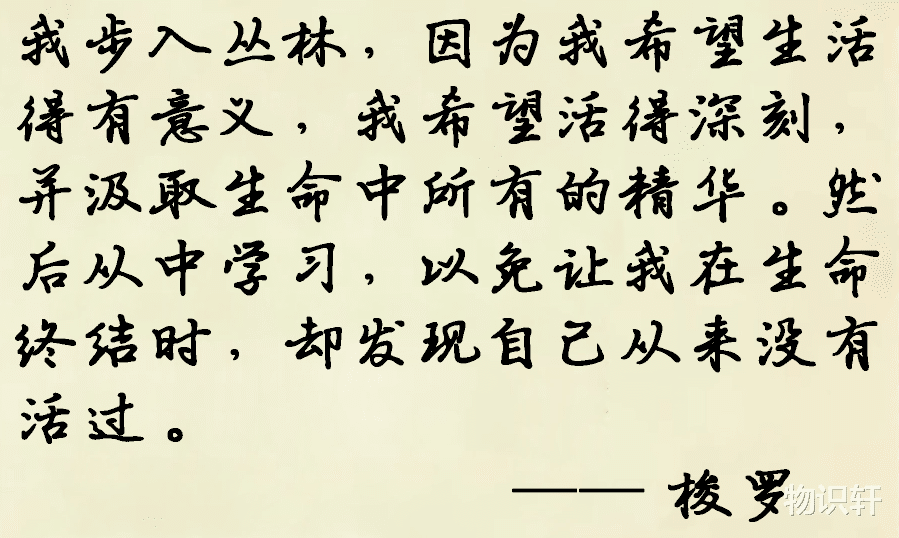 我步入丛林，因为我希望生活
得有意义，我希望活得深刻，
并汲取生命中所有的精华。然
后从中学习，以免让我在生命
终结时，却发现自己从来没有
活过。
—— 梭罗
物识轩